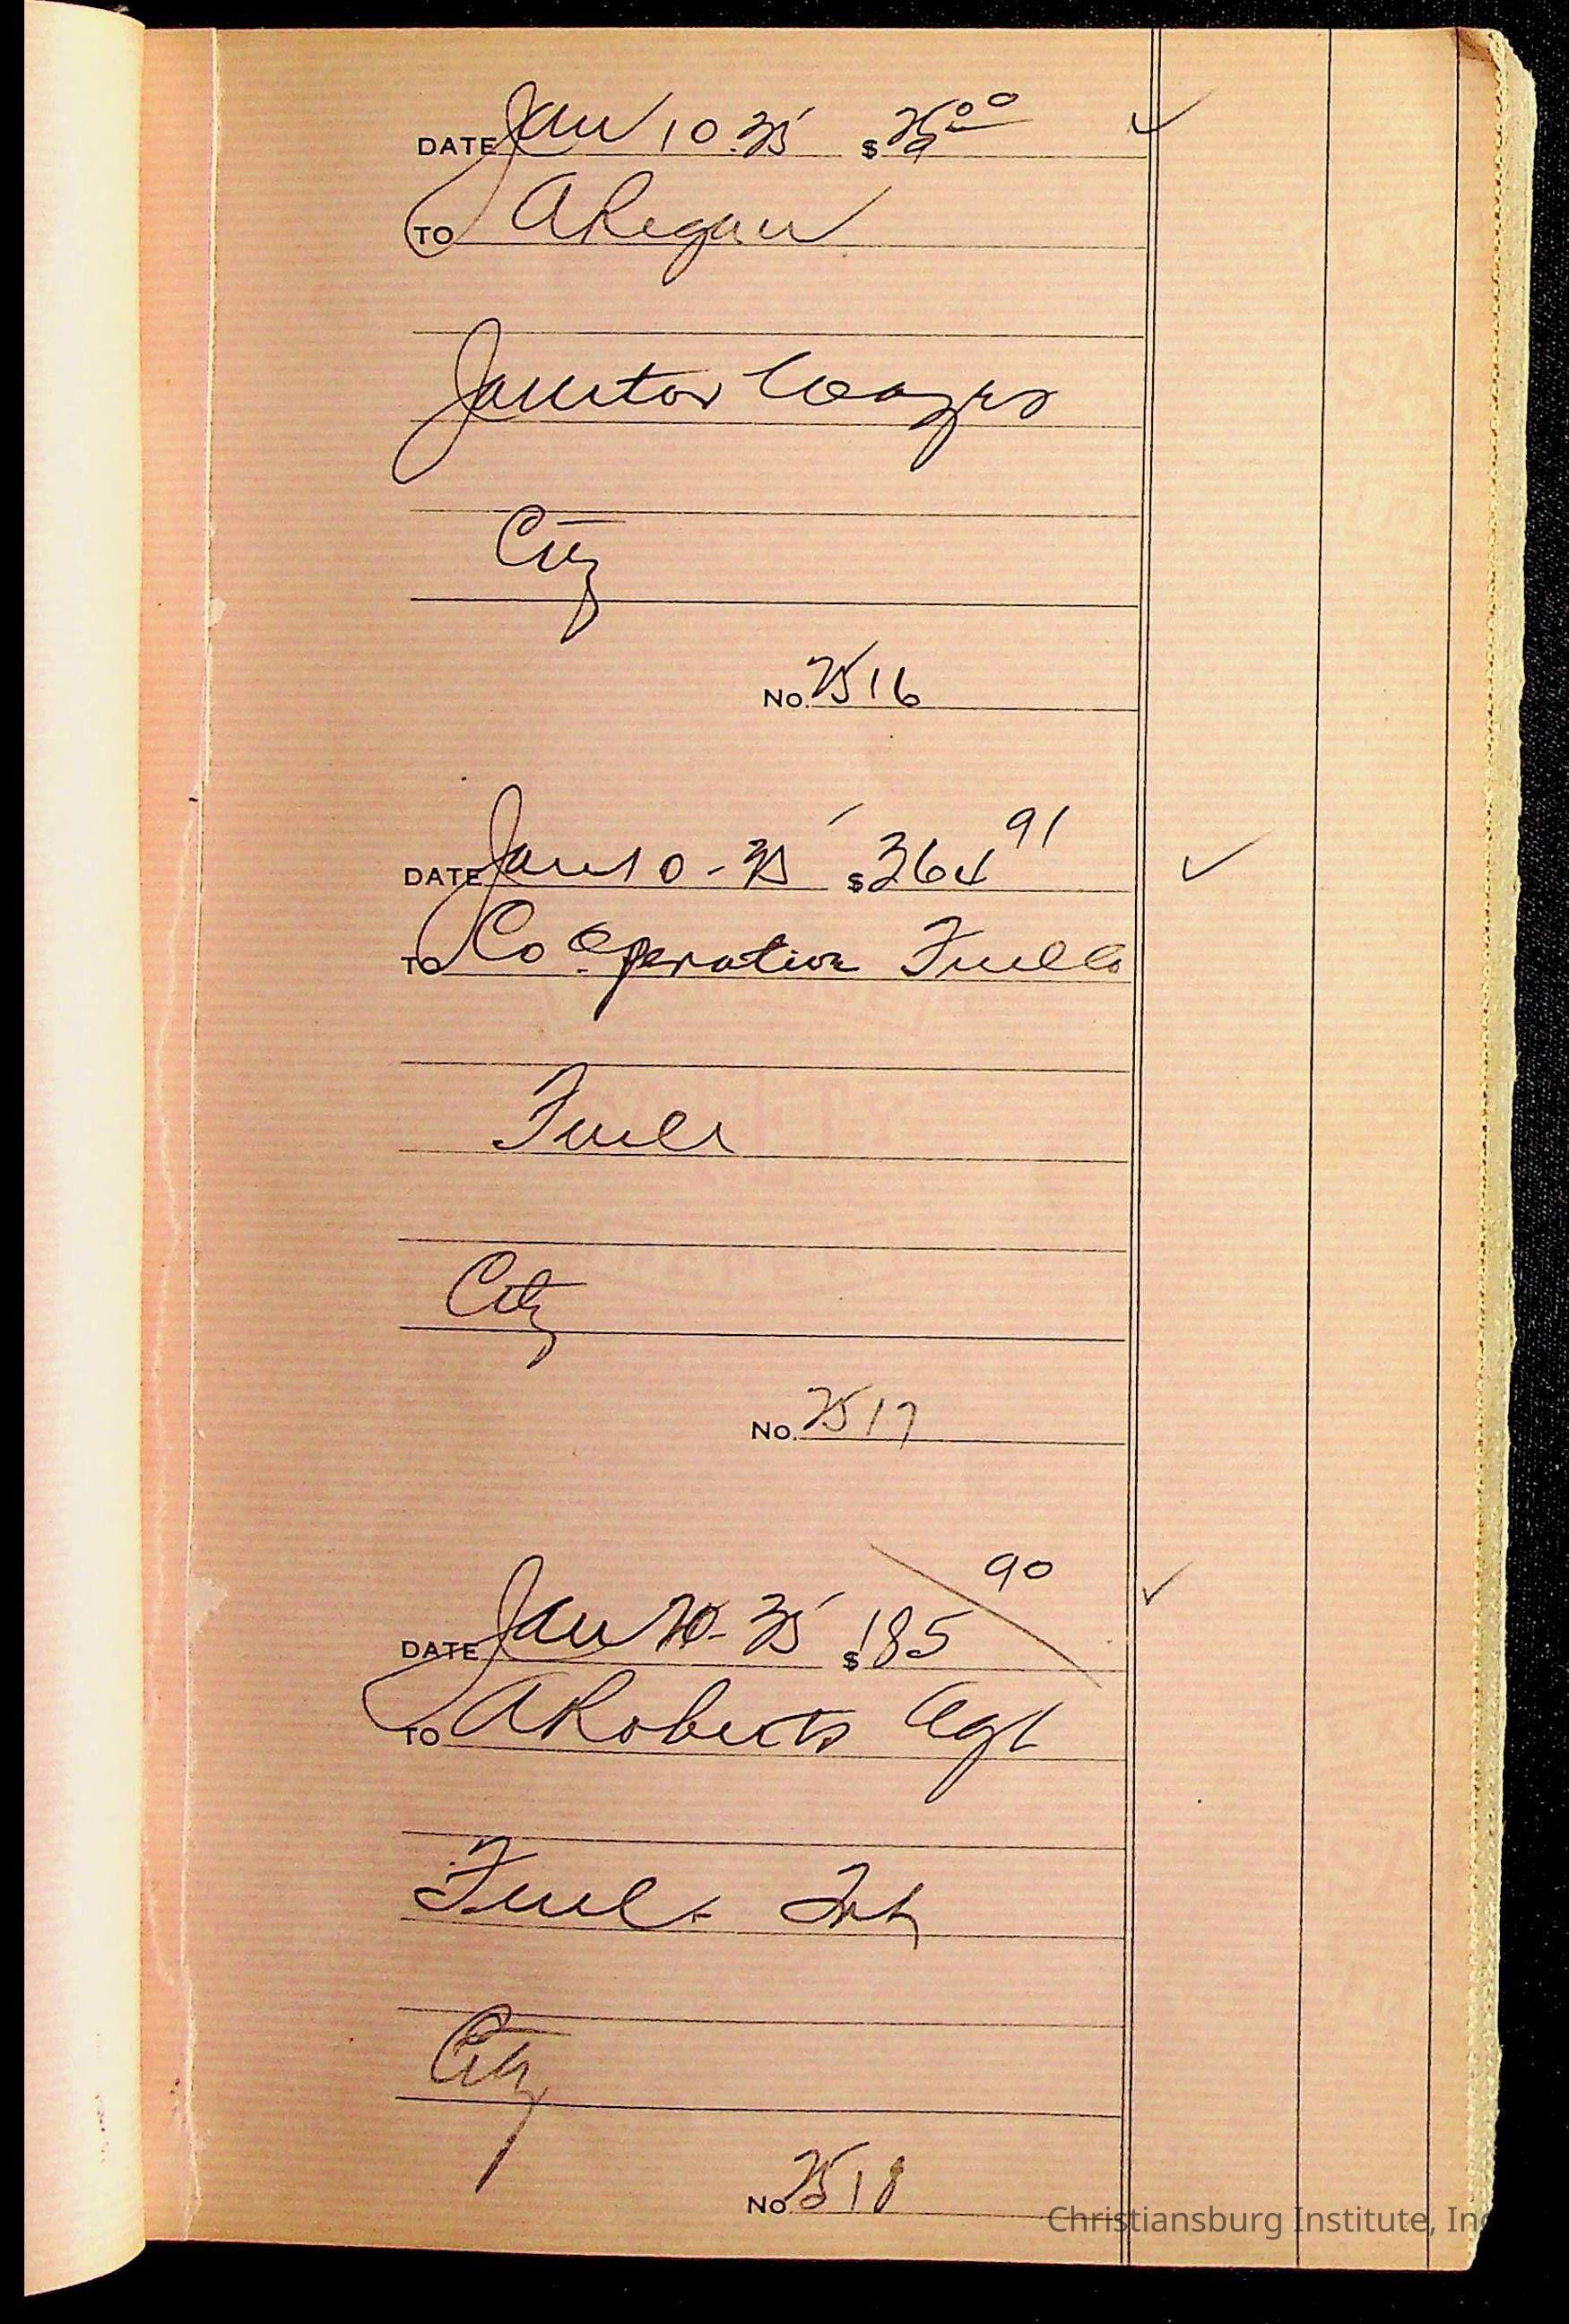 DATE Jan 10-35 $ 25 00 ✓
TO A Regan
Janitor Wages
City
No. 2516
DATE Jan 10-35 $ 364 91 ✓
TO Co Operation Fuel Co
Fuel
City
No. 2517
DATE Jan 10-35 $ 185 90 ✓
TO A Roberts Agt
Fuel Frt
City
No. 2518
Christiansburg Institute, Inc